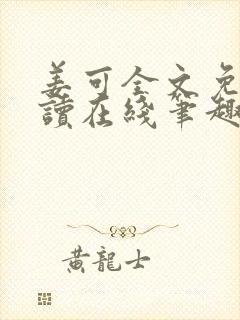 姜可全文免
讀在綫筆趣
黃龍士